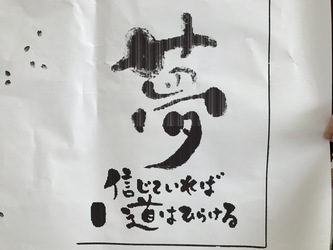 夢
信じていれば
道はひらける